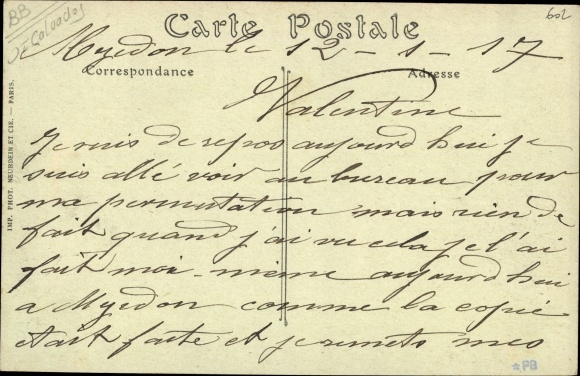 BB
Calvados
602
Carte Postale
Myedon le 12-1-17
Correspondance
Adresse
Valentine
Je suis de repos aujourd hui je
suis allé voir au bureau pour
ma permutation mais rien de
fait quand j'ai vu cela je l'ai
fait moi-même aujourd hui
a Myedon comme la copie
était faite et je remets mes
IMP. PHOT. NEURDEIN ET CIE. — PARIS.
*PB